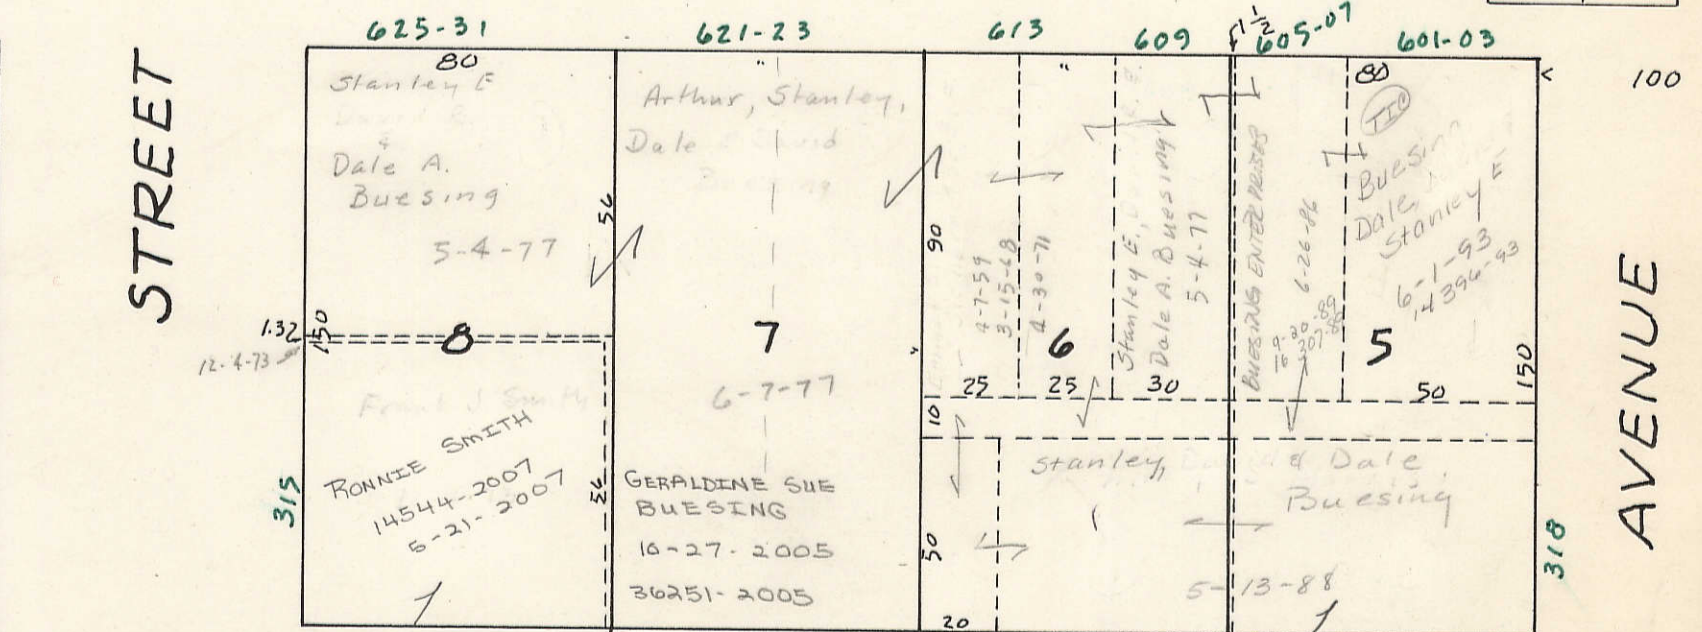 625-31
621-23
613
609
1 1/2
605-07
601-03
100
STREET
80
Stanley E
David B.
&
Dale A.
Buesing
5-4-77
56
1.32
150
12-4-73
8
Frank J Smith
RONNIE SMITH
14544-2007
5-21-2007
315
56
"
Arthur, Stanley,
Dale & David
Buesing
7
6-7-77
GERALDINE SUE
BUESING
10-27-2005
36251-2005
"
90
4-7-59
3-15-68
4-30-71
6
Stanley E.,
Dale A. Buesing
5-4-77
25
25
30
10
50
20
BUESING ENTERPRISES
6-26-86
80
TIC
Buesing
Dale,
Stanley E
6-1-93
14396-93
5
50
150
Stanley, David & Dale
Buesing
5-13-88
318
AVENUE